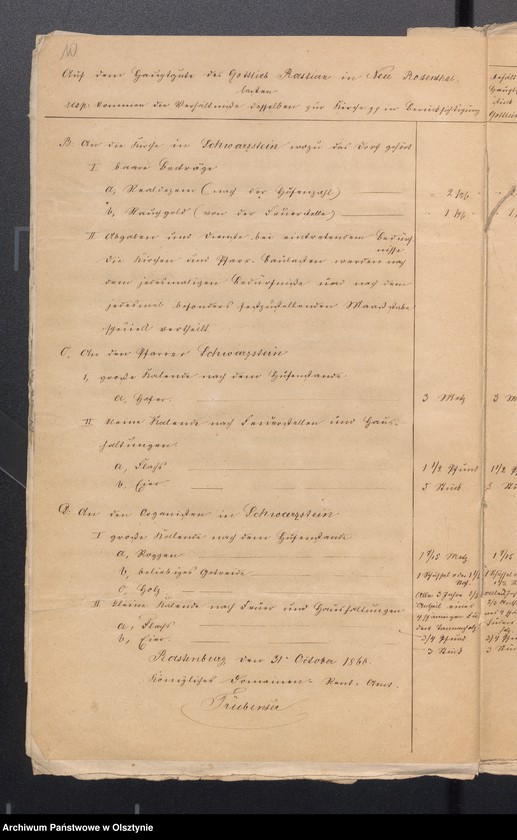 10
Auf dem Hauptgute des Gottlieb in Neu Rosenthal
lasten
resp. kommen die Verhältnisse desselben zur Kirche pp in Berücksichtigung
B. An die Kirche in Schwarzstein wozu das Dorf gehört
I baare Beträge
a, Realdezem (nach der Hufenzahl) 2
b, Rauchgeld (von der Feuerstelle) 1
II Abgaben und Dienste bei eintretendem Bedürf-
nisse
die Kirchen und Pfarr-Baulasten werden nach
dem jedesmaligen Bedürfnisse und nach dem
jedesmal besonders festzustellenden Maasstabe
speciell vertheilt
C. An den Pfarrer Schwarzstein
I, große Kalende nach dem Hufenstande
a, Hafer. 3 Metz 3 M
II kleine Kalende nach Feuerstellen und Haus-
haltungen.
a, Flachs 1 1/2 Pfund 1 1/2 Pf
b, Eier 5 Stück 5 Stü
D. An den Organisten in Schwarzstein
I große Kalende nach dem Hufenstande
a, Roggen Metz
b, beliebiges Getreide 1 Scheffel oder
c, Holz Alle 3 Jahre
Antheil einer
II kleine Kalende nach Feuer und Haushaltungen
a, Flachs 3/4 Pfund
b, Eier. 3 Stück 3 Stü
Rastenburg den 31 October 1866
Königliches Domainen-Rent-Amt.
Archiwum Państwowe w Olsztynie